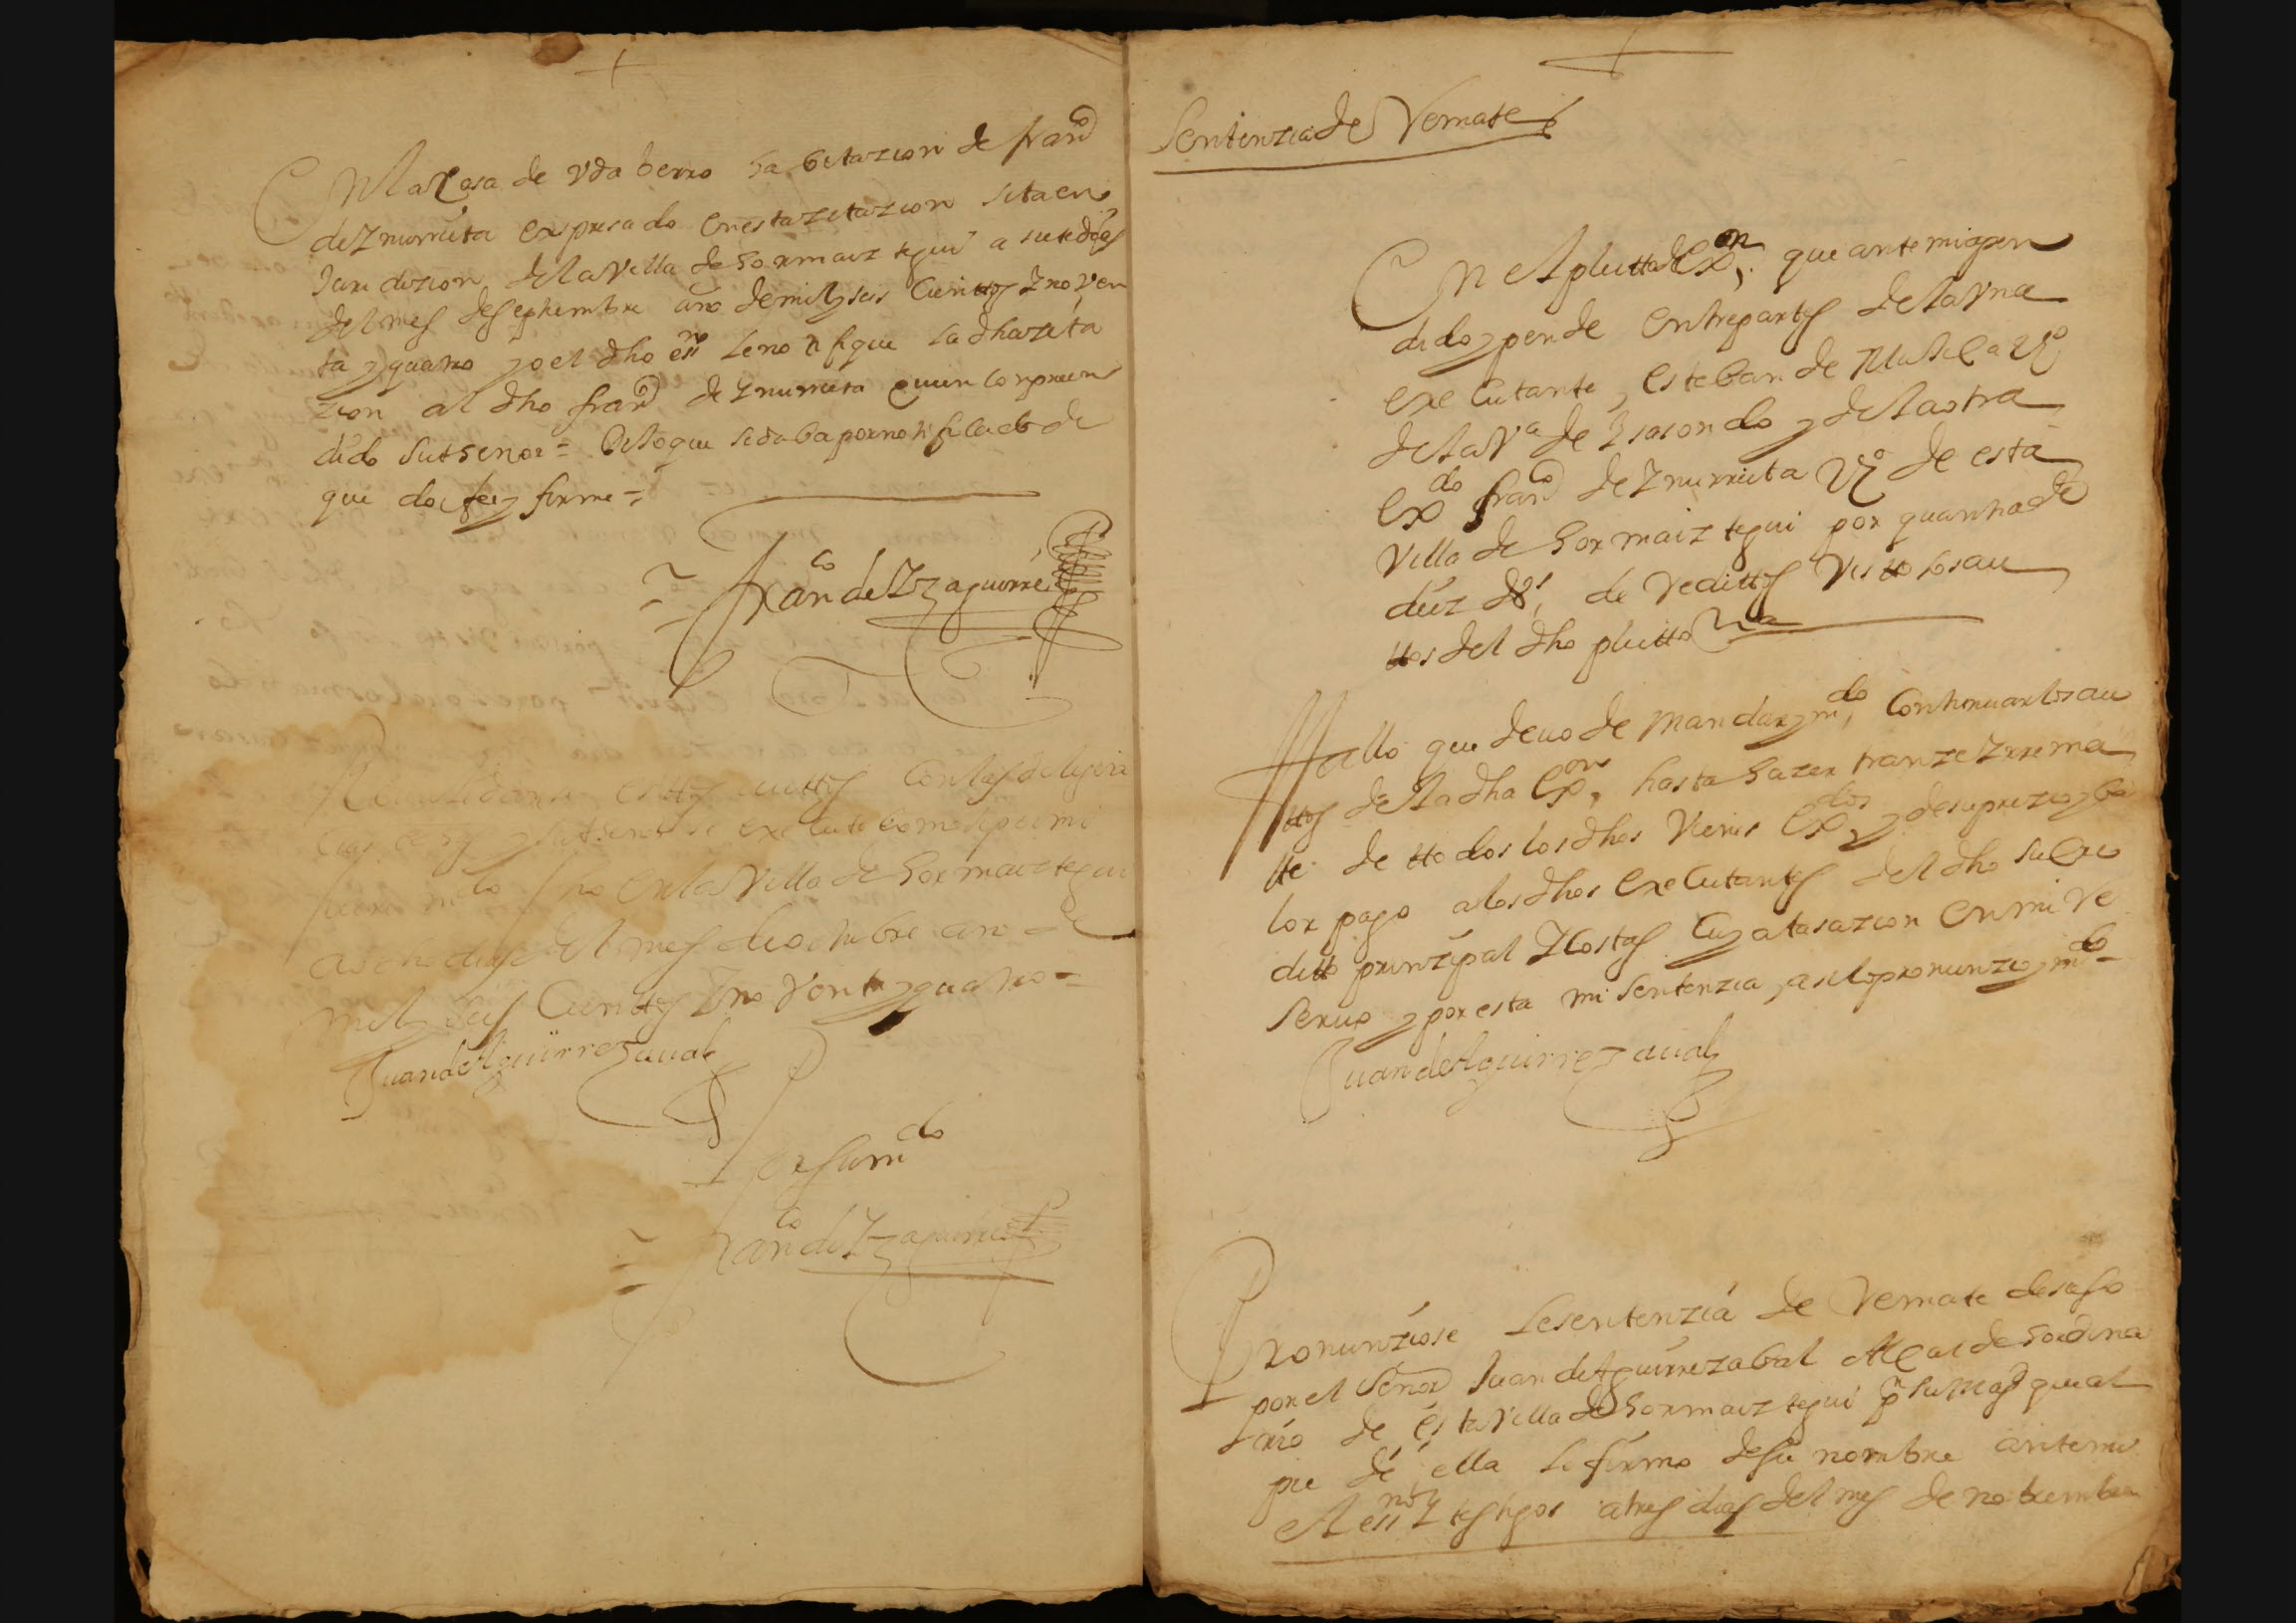 En la Casa de Vdaberro habitazion de fran^co
de Ynurrieta expresado en esta zitazion sita en
Juridizion de la Villa de hormaiztegui a siete dias
del mes de septiembre año de mil y seis Cientos y noven
ta y quatro yo el dho ess^no le notifique la dha zita
zion al dho fran^co de Ynurrieta quien conpreen
dido su thenor = Dixo que se daba por notificado de
que doi fee y firme =
Fran^co de Yzaguirre
estos auttos Con las delijen
cias y su thenor se execute como
m^do fho en la Villa de hormaiztegui
a ocho dias del mes de octubre año de
mil y seis Cientos y noventa y quatro =
Juan de Aguirrezaual
Por su m^do
Fran^co de Yzaguirre
Sentenzia de Remate
En el pleitto de ex^on que ante mi a pen
dido y pende entre partes de la Vna
executante, esteban de Mujica V^o
de la V^a de Ysasondo y de la otra
ex^do fran^co de Ynurrieta V^o de esta
Villa de hormaiztegui por quantia de
diez d^s de Reditos Visto los au
ttos del dho pleitto
Hallo que deuo de mandar y m^do Continuar los au
ttos de la dha ex^on hasta hazer tranze y rrema
tte de ttodos los dhos Vienes ex^dos y de su prezio y ba
lor pago a los dhos executantes del dho su cre
ditto prinzipal y Costas Cuya tasazion en mi Re
seruo y por esta mi Sentenzia, asi lo pronunzio y m^do =
Juan de Aguirrezaual
Pronunziose la sentenzia de Remate de suso
por el Señor Juan de Aguirrezabal Alcalde hordina
rio de esta Villa de hormaiztegui p^r su Mag^d que al
pie de ella lo firmo de su nombre ante mi
el ess^no y testigos a tres dias del mes de nobiembre